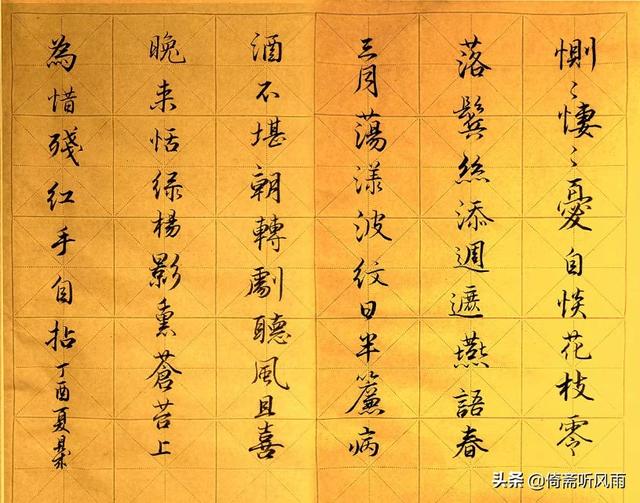 惻〻悽〻憂自惔花枝零
落鬢絲添週遮燕語春
三月蕩漾波紋日半簾病
酒不堪朝轉劇聽風且喜
晚来恬緑楊影裏蒼苔上
為惜殘紅手自拈丁酉夏
头条 @倚斋听风雨